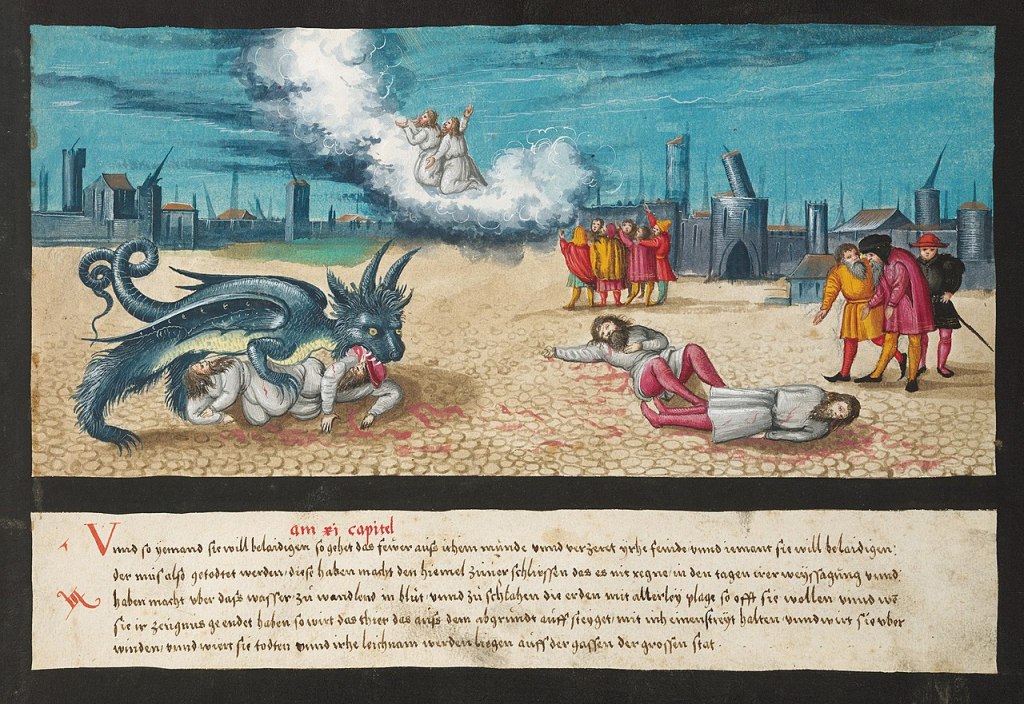 am xi capitel
Vnnd so yemand sie will belaidigen so gehet das fewer auß ihem munde vnnd verzeret yrhe feinde vnnd iemant sie will belaidigen:
der mus also getodtet werden, diese haben macht den hiemel zuuer schliessen das es nit regne in den tagen irer weyssagung vnnd
haben macht vber dass wasser zu wandlend in blut vnnd zu schlahen die erden mit allerley plage so offt sie wollen vnnd
sie ir zeugnus geendet haben so wirt das thier das auss dem abgrundt auff steyget, mit ich einen streyt halten, vnnd wirt sie vber
winden, vnnd wiert sie todten vnnd irhe leichnam werden liegen auff der gassen der grossen stat.